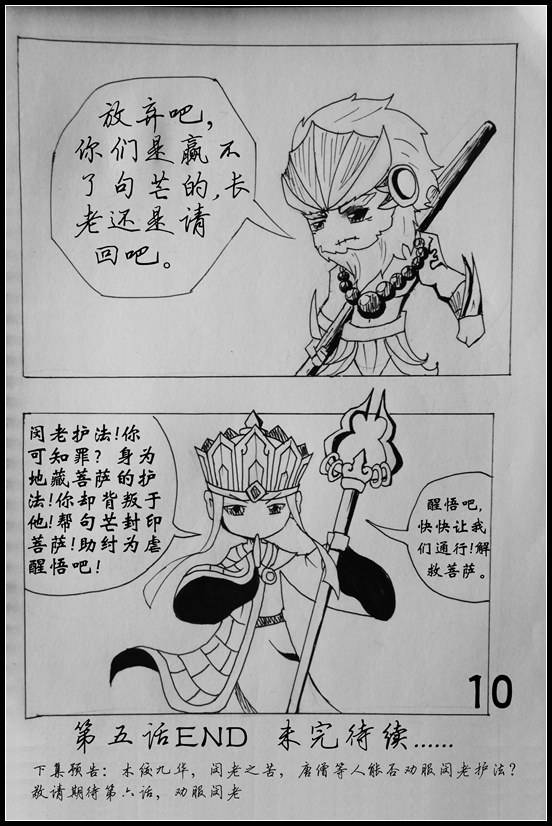 放弃吧，
你们是赢不
了句芒的，长
老还是请
回吧。
闵老护法！你
可知罪？身为
地藏菩萨的护
法！你却背叛于
他！帮句芒封印
菩萨！助纣为虐
醒悟吧！
醒悟吧，
快快让我
们通行！解
救菩萨。
10
第五话END 未完待续……
下集预告：木侵九华，闵老之苦，唐僧等人能否劝服闵老护法？
敬请期待第六话，劝服闵老